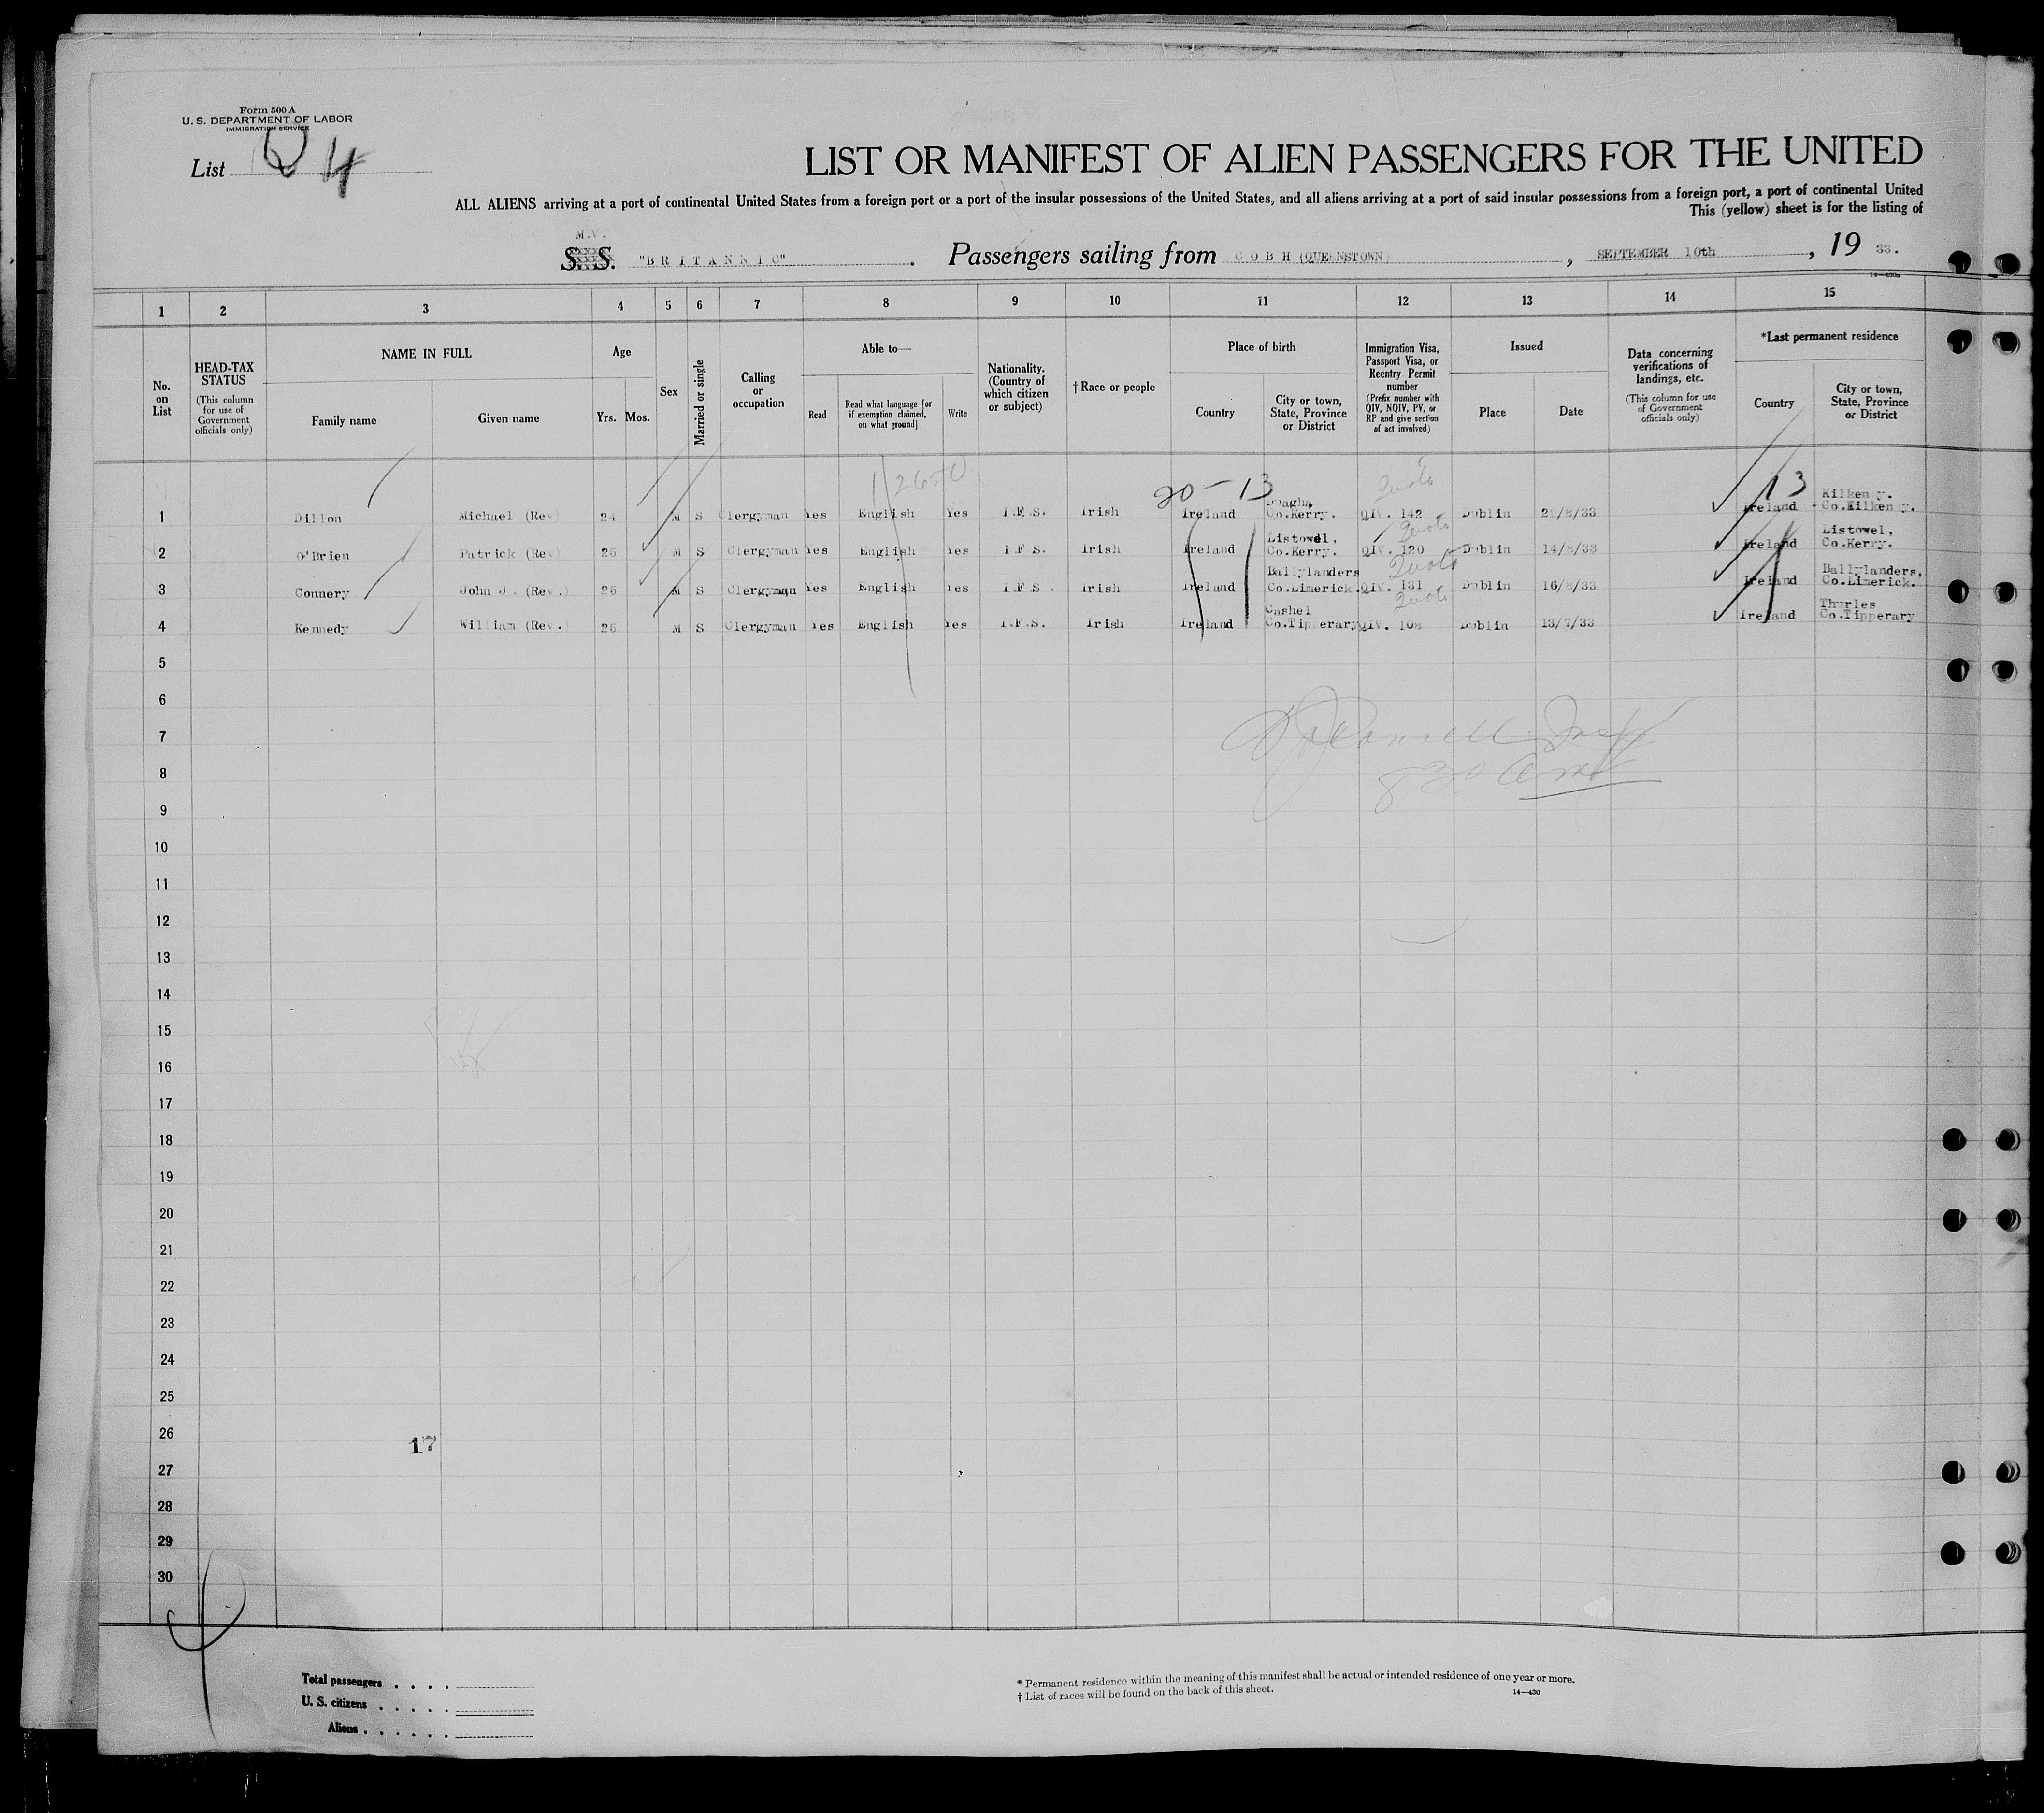 Form 500 A
U. S. DEPARTMENT OF LABOR
IMMIGRATION SERVICE
List 4
LIST OR MANIFEST OF ALIEN PASSENGERS FOR THE UNITED
ALL ALIENS arriving at a port of continental United States from a foreign port or a port of the insular possessions of the United States, and all aliens arriving at a port of said insular possessions from a foreign port, a port of continental United
This (yellow) sheet is for the listing of
M.V.
S. S. "BRITANNIC" . Passengers sailing from COBH (QUEENSTOWN) , SEPTEMBER 10th , 19 33.
14—430a
1 2 3 4 5 6 7 8 9 10 11 12 13 14 15
No. on List
HEAD-TAX STATUS
(This column for use of Government officials only)
NAME IN FULL
Family name Given name
Age
Yrs. Mos.
Sex
Married or single
Calling or occupation
Able to—
Read
Read what language [or if exemption claimed, on what ground]
Write
Nationality. (Country of which citizen or subject)
†Race or people
Place of birth
Country
City or town, State, Province or District
Immigration Visa, Passport Visa, or Reentry Permit number
(Prefix number with QIV, NQIV, PV, or RP and give section of act involved)
Issued
Place Date
Data concerning verifications of landings, etc.
(This column for use of Government officials only)
*Last permanent residence
Country
City or town, State, Province or District
20 - 13 Quota 13
1 Dillon Michael (Rev) 24 M S Clergyman Yes English Yes I.F.S. Irish Ireland Co.Kerry. QIV. 142 Dublin /8/33 Ireland Kilkenny. Co.Kilkenny.
Quota
2 O'Brien Patrick (Rev) 25 M S Clergyman Yes English Yes I.F.S. Irish Ireland Listowel, Co.Kerry. QIV. 120 Dublin 14/8/33 Ireland Listowel, Co.Kerry.
Quota
3 Connery John J. (Rev.) 25 M S Clergyman Yes English Yes I.F.S. Irish Ireland Ballylanders Co.Limerick. QIV. 131 Dublin 16/8/33 Ireland Ballylanders, Co.Limerick.
Quota
4 Kennedy William (Rev.) 25 M S Clergyman Yes English Yes I.F.S. Irish Ireland Cashel Co.Tipperary QIV. 108 Dublin 13/7/33 Ireland Thurles Co.Tipperary
5
6
7
8
9
10
11
12
13
14
15
16
17
18
19
20
21
22
23
24
25
26
17
27
28
29
30
Total passengers . . . .
U. S. citizens . . . . .
Aliens . . . . . .
* Permanent residence within the meaning of this manifest shall be actual or intended residence of one year or more.
† List of races will be found on the back of this sheet.
14—430